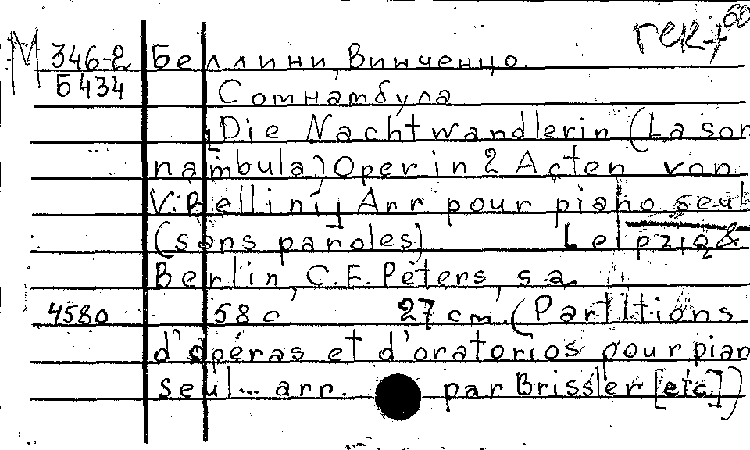 М 346-2 Беллини, Винченцо.
Б 434 Сомнамбула
[Die Nachtwandlerin (La son
nambula) Oper in 2 Acten von
V. Bellini] Arr pour piano seul
(sans paroles) Leipzig &
Berlin, C. F. Peters, s.a.
4580 58 с 27 cm. (Partitions
d'opéras et d'oratorios pour pian
seul... arr. par Brissler [etc])